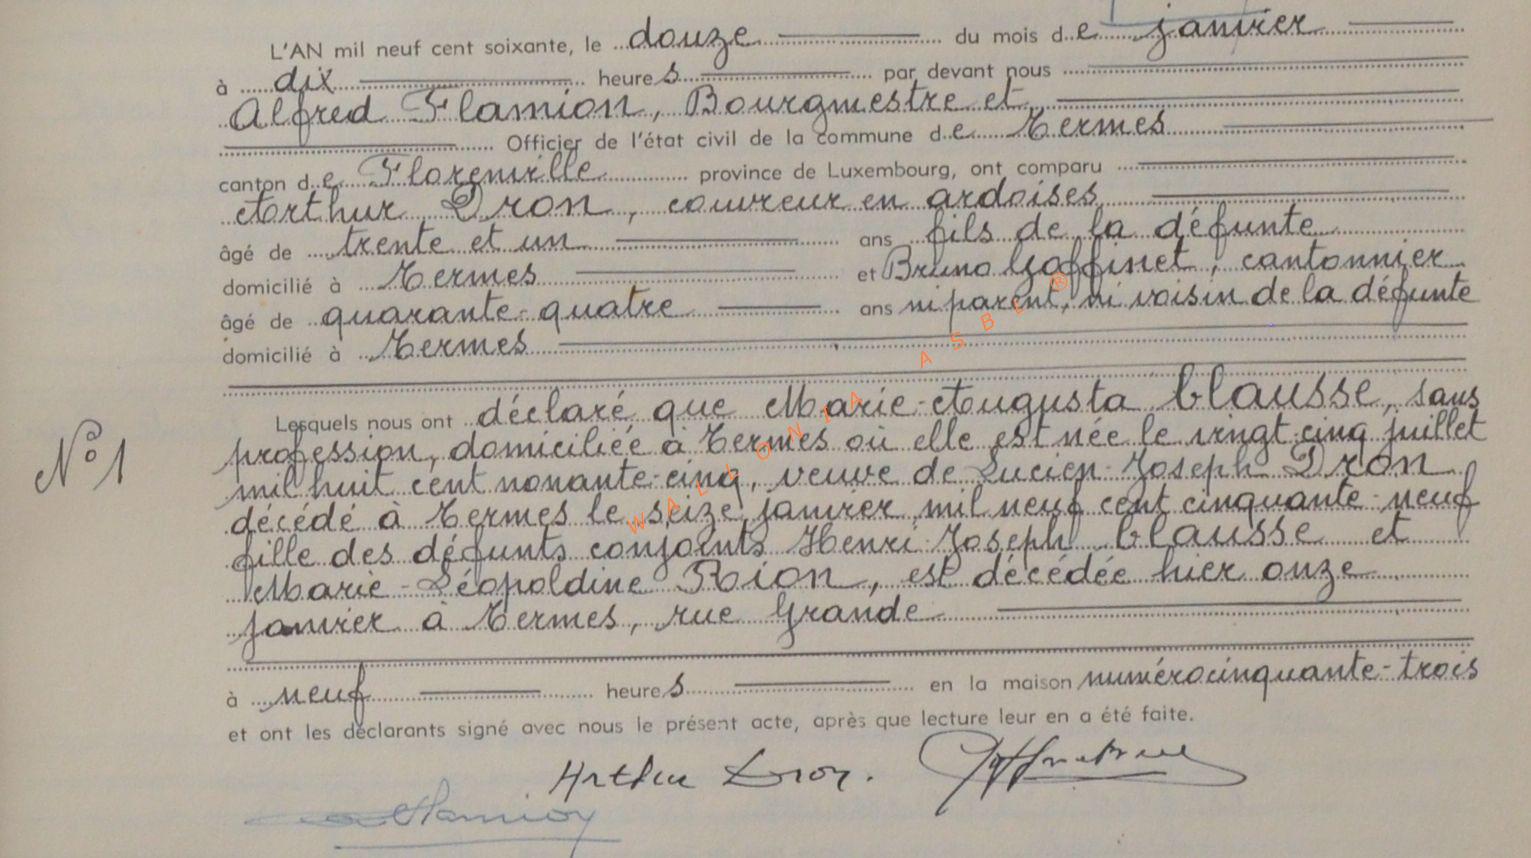 L'AN mil neuf cent soixante, le douze du mois de janvier
à dix heures par devant nous
Alfred Flamion, Bourgmestre et
Officier de l'état civil de la commune de Termes
canton de Florenville province de Luxembourg, ont comparu
Arthur Dron, couvreur en ardoises
âgé de trente et un ans fils de la défunte
domicilié à Termes et Bruno Goffinet, cantonnier
âgé de quarante-quatre ans ni parent, ni voisin de la défunte
domicilié à Termes
Lesquels nous ont déclaré que Marie-Augusta Clausse, sans
N°1
profession, domiciliée à Termes où elle est née le vingt-cinq juillet
mil huit cent nonante-cinq, veuve de Lucien-Joseph Dron
décédé à Termes le seize janvier mil neuf cent cinquante-neuf
fille des défunts conjoints Henri-Joseph Clausse et
Marie-Léopoldine Rion, est décédée hier onze
janvier à Termes, rue Grande
à neuf heures en la maison numéro cinquante-trois
et ont les déclarants signé avec nous le présent acte, après que lecture leur en a été faite.
Arthur Dron.
Flamion
WALLONIA ASBL ®